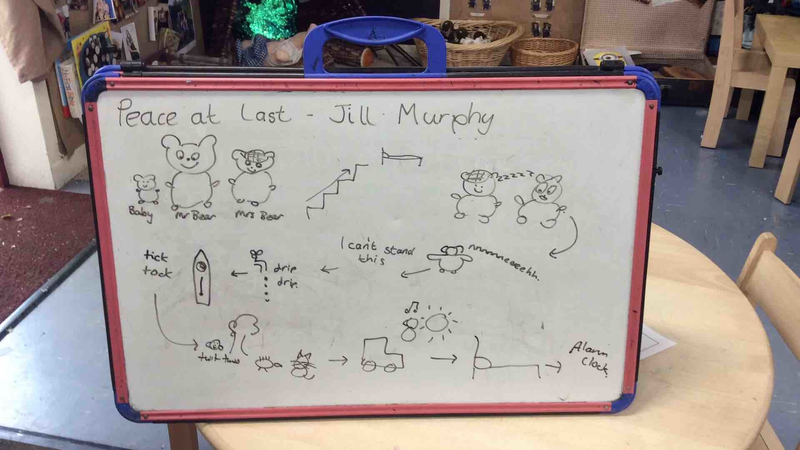 Peace at Last - Jill Murphy
Baby
Mr Bear
Mrs Bear
zzzzz
I can't stand
this
tick
tock
drip
drip
Alarm
Clock